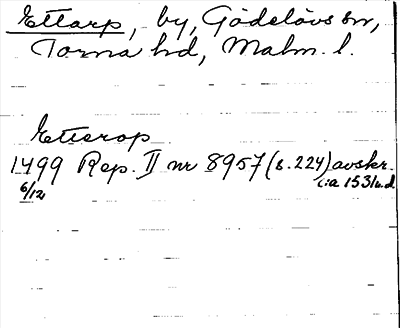 Ettarp, by, Gödelövs sn,
Torna hd, Malm. l.
Etterop
1499 Rep. II nr 8957 (s. 224) avskr.
6/12 c:a 1531 u.d.